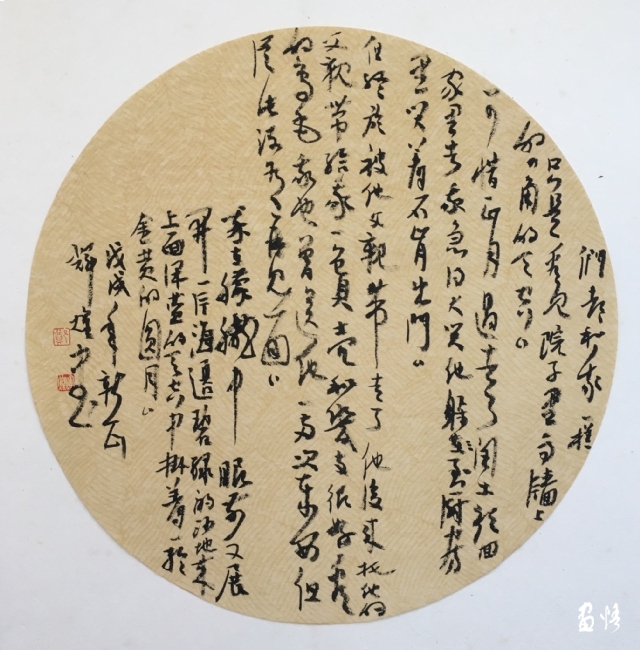 們都和我一樣
只是看見院子里高牆上
的四角的天空。
可惜正月過去了閏土須回
家里去我急得大哭他躲到厨房
里哭着不肯出門。
但終於被他父親帶走了他後來托他的
父親帶給我一包貝壳和幾支很好看
的鳥毛我也曾送他一兩次東西但
從此没有再見一面。
我在朦朧中眼前又展
開一片海邊碧緑的沙地来
上面深蓝的天空中掛着一輪
金黄的圓月。
戊戌年新正
書
画悟